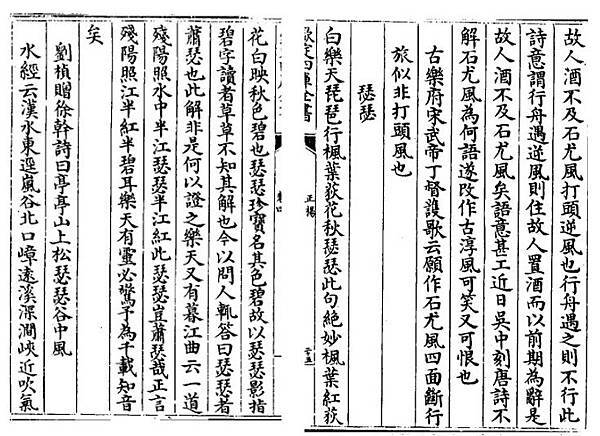 故人酒不及石尤風打頭逆風也行舟遇之則不行此
詩意謂行舟遇逆風則住故人置酒而以前期為辭是
故人酒不及石尤風矣語意甚工近日吳中刻唐詩不
解石尤風為何語遂改作古淳風可笑又可恨也
古樂府宋武帝丁督護歌云願作石尤風四面斷行
旅似非打頭風也
瑟瑟
白樂天琵琶行楓葉荻花秋瑟瑟此句絶妙楓葉紅荻
欽定四庫全書
正楊
花白映秋色碧也瑟瑟珍寶名其色碧故以瑟瑟影指
碧字讀者草草不知其解也今以問人輒答曰瑟瑟者
蕭瑟也此解非是何以證之樂天又有暮江曲云一道
殘陽照水中半江瑟瑟半江紅此瑟瑟豈蕭瑟哉正言
殘陽照江半紅半碧耳樂天有靈必驚予為千載知音
矣
劉楨贈徐幹詩曰亭亭山上松瑟瑟谷中風
水經云漢水東逕嵐谷北口嶂遠溪深澗峽近吹氣